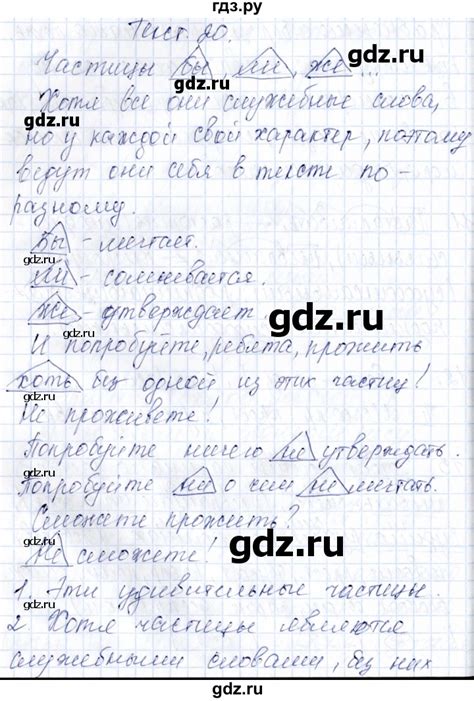 гдз.ру
Тест 20.
Частицы бы, ли, же ...
Хотя все они служебные слова,
но у каждой свой характер, поэтому
ведут они себя в тексте по-
разному.
Бы - мечтает.
Ли - сомневается.
Же - утверждает
И попробуйте, ребята, прожить
хоть без одной из этих частиц!
Не проживёте!
Попробуйте ничего не утверждать.
Попробуйте ни о чем не мечтать.
Сможете прожить?
Не сможете!
1. Эти удивительные частицы.
2 Хотя частицы являются
служебными словами, без них
gdz.ru
gdz.ru
gdz.ru
gdz.ru
gdz.ru
gdz.ru
gdz.ru
gdz.ru
gdz.ru
gdz.ru
gdz.ru